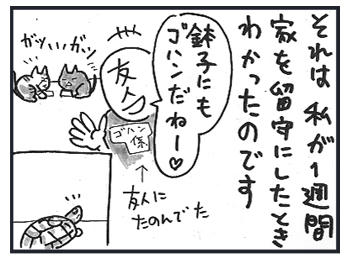 それは 私が1週間
家を留守にしたとき
わかったのです
鉢子にも
ゴハンだねー♡
友人
ゴハン
係
↑
友人に
たのんでた
ガッいいガッ